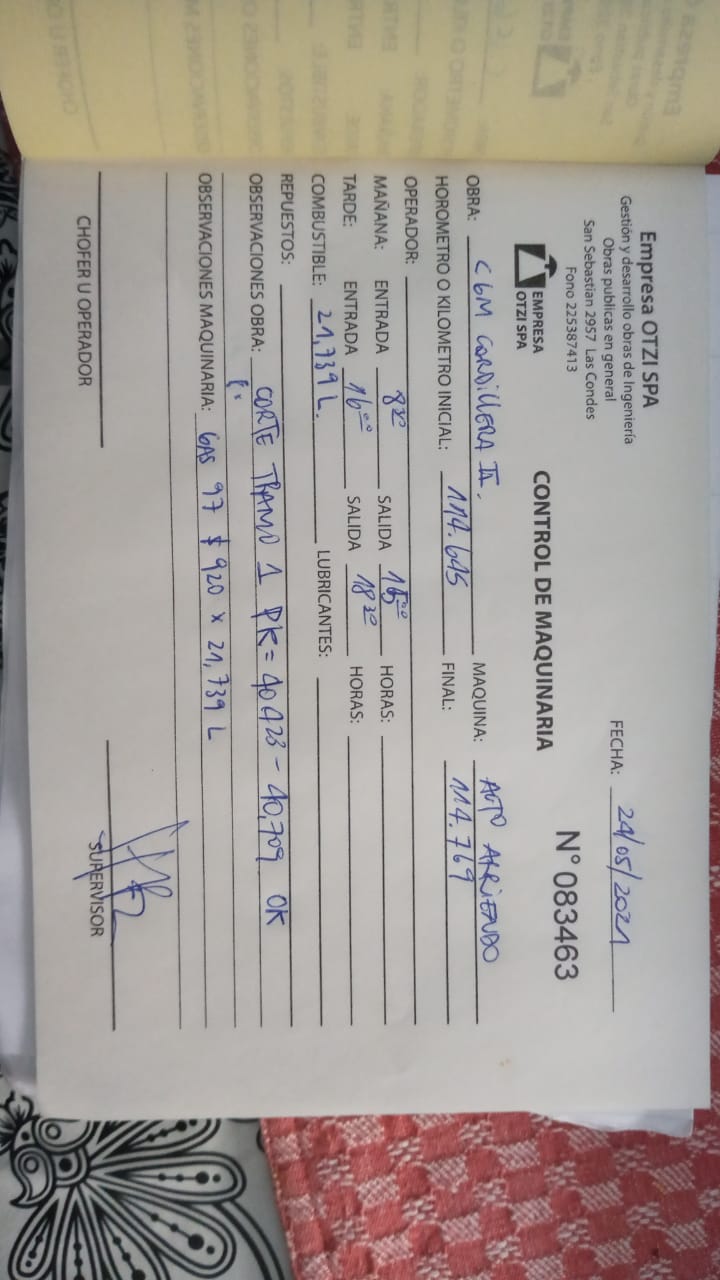 Empresa OTZI SPA
Gestión y desarrollo obras de Ingeniería
Obras publicas en general
San Sebastian 2957 Las Condes
Fono 225387413
EMPRESA
OTZI SPA
FECHA: 24/05/2021
N° 083463
CONTROL DE MAQUINARIA
OBRA: CGM CORDILLERA II. MAQUINA: AUTO ARRIENDO
HOROMETRO O KILOMETRO INICIAL: 114.645 FINAL: 114.769
OPERADOR:
MAÑANA: ENTRADA 8 30 SALIDA 15 00 HORAS:
TARDE: ENTRADA 16 00 SALIDA 18 30 HORAS:
COMBUSTIBLE: 21,739 L. LUBRICANTES:
REPUESTOS:
OBSERVACIONES OBRA: CORTE TRAMO 1 PK= 40423 - 40,709 OK
OBSERVACIONES MAQUINARIA: GAS 97 $ 920 x 21,739 L
CHOFER U OPERADOR
SUPERVISOR